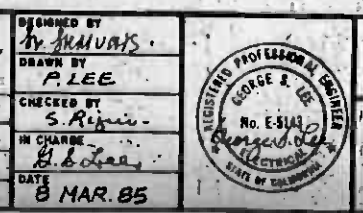 DESIGNED BY
DRAWN BY
P. LEE
CHECKED BY
S.
IN CHARGE
G. S. Lee
DATE
8 MAR. 85
REGISTERED PROFESSIONAL ENGINEER
GEORGE S. LEE
No.
George S. Lee
ELECTRICAL
STATE OF